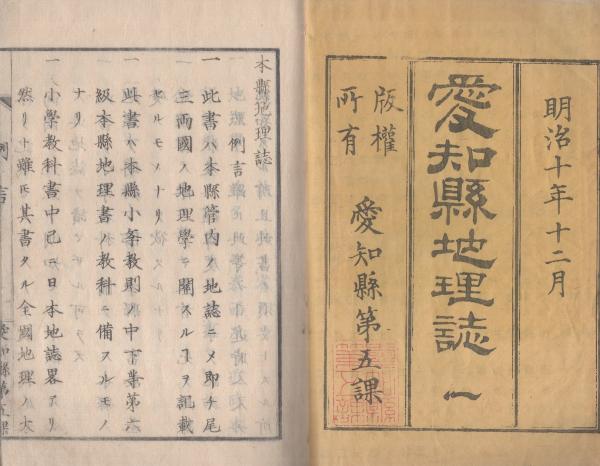 明治十年十二月
愛知縣地理誌 一
版權
所有
愛知縣第五課
本縣地理誌
例言
一 此書ハ本縣管内ノ地誌ニメ即チ尾
三両國ノ地理學ニ關スル
ヲ記載
セルモノナリ
一 此書ハ本縣小
教則ノ中下等第六
級本縣地理書ノ教科ニ備スルモノ
ナリ
一 小學教科書中已ニ日本地誌畧アリ
然リト雖モ其書タル全國地理ノ大
例言
愛知縣第五課